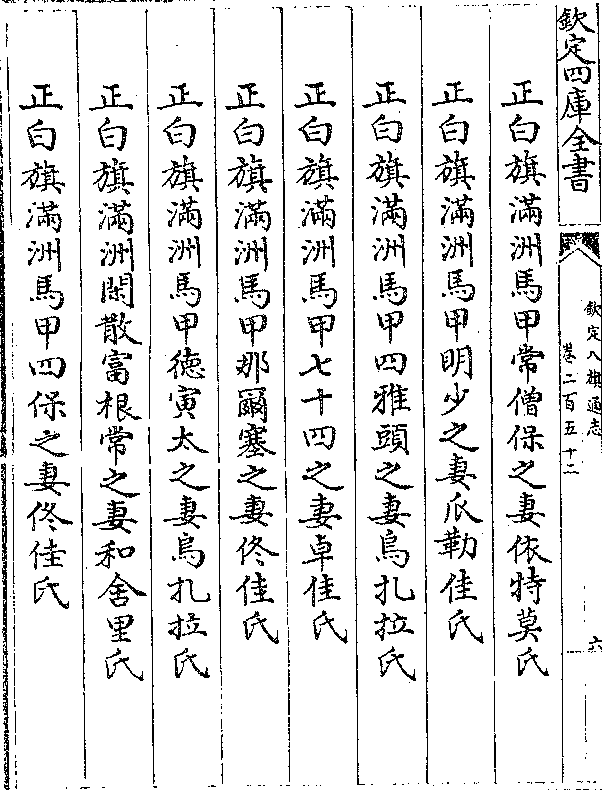 欽定四庫全書
欽定八旗通志
卷二百五十二
六
正白旗滿洲馬甲常僧保之妻依特莫氏
正白旗滿洲馬甲明少之妻瓜勒佳氏
正白旗滿洲馬甲四雅頭之妻烏扎拉氏
正白旗滿洲馬甲七十四之妻卓佳氏
正白旗滿洲馬甲那爾塞之妻佟佳氏
正白旗滿洲馬甲德寅太之妻烏扎拉氏
正白旗滿洲閑散富根常之妻和舍里氏
正白旗滿洲馬甲四保之妻佟佳氏